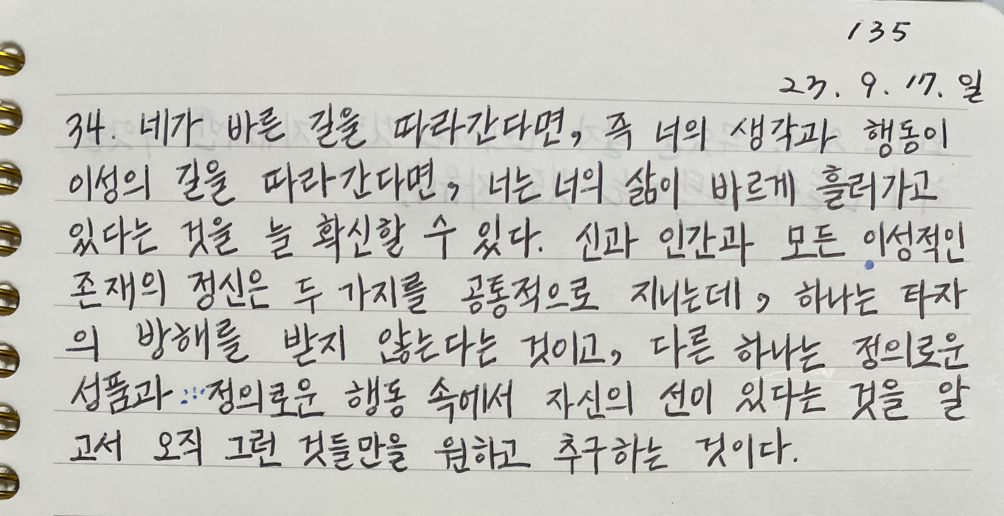 135
23. 9. 17. 일
34. 네가 바른 길을 따라간다면, 즉 너의 생각과 행동이
이성의 길을 따라간다면, 너는 너의 삶이 바르게 흘러가고
있다는 것을 늘 확신할 수 있다. 신과 인간과 모든 이성적인
존재의 정신은 두 가지를 공통적으로 지니는데, 하나는 타자
의 방해를 받지 않는다는 것이고, 다른 하나는 정의로운
성품과 정의로운 행동 속에서 자신의 선이 있다는 것을 알
고서 오직 그런 것들만을 원하고 추구하는 것이다.